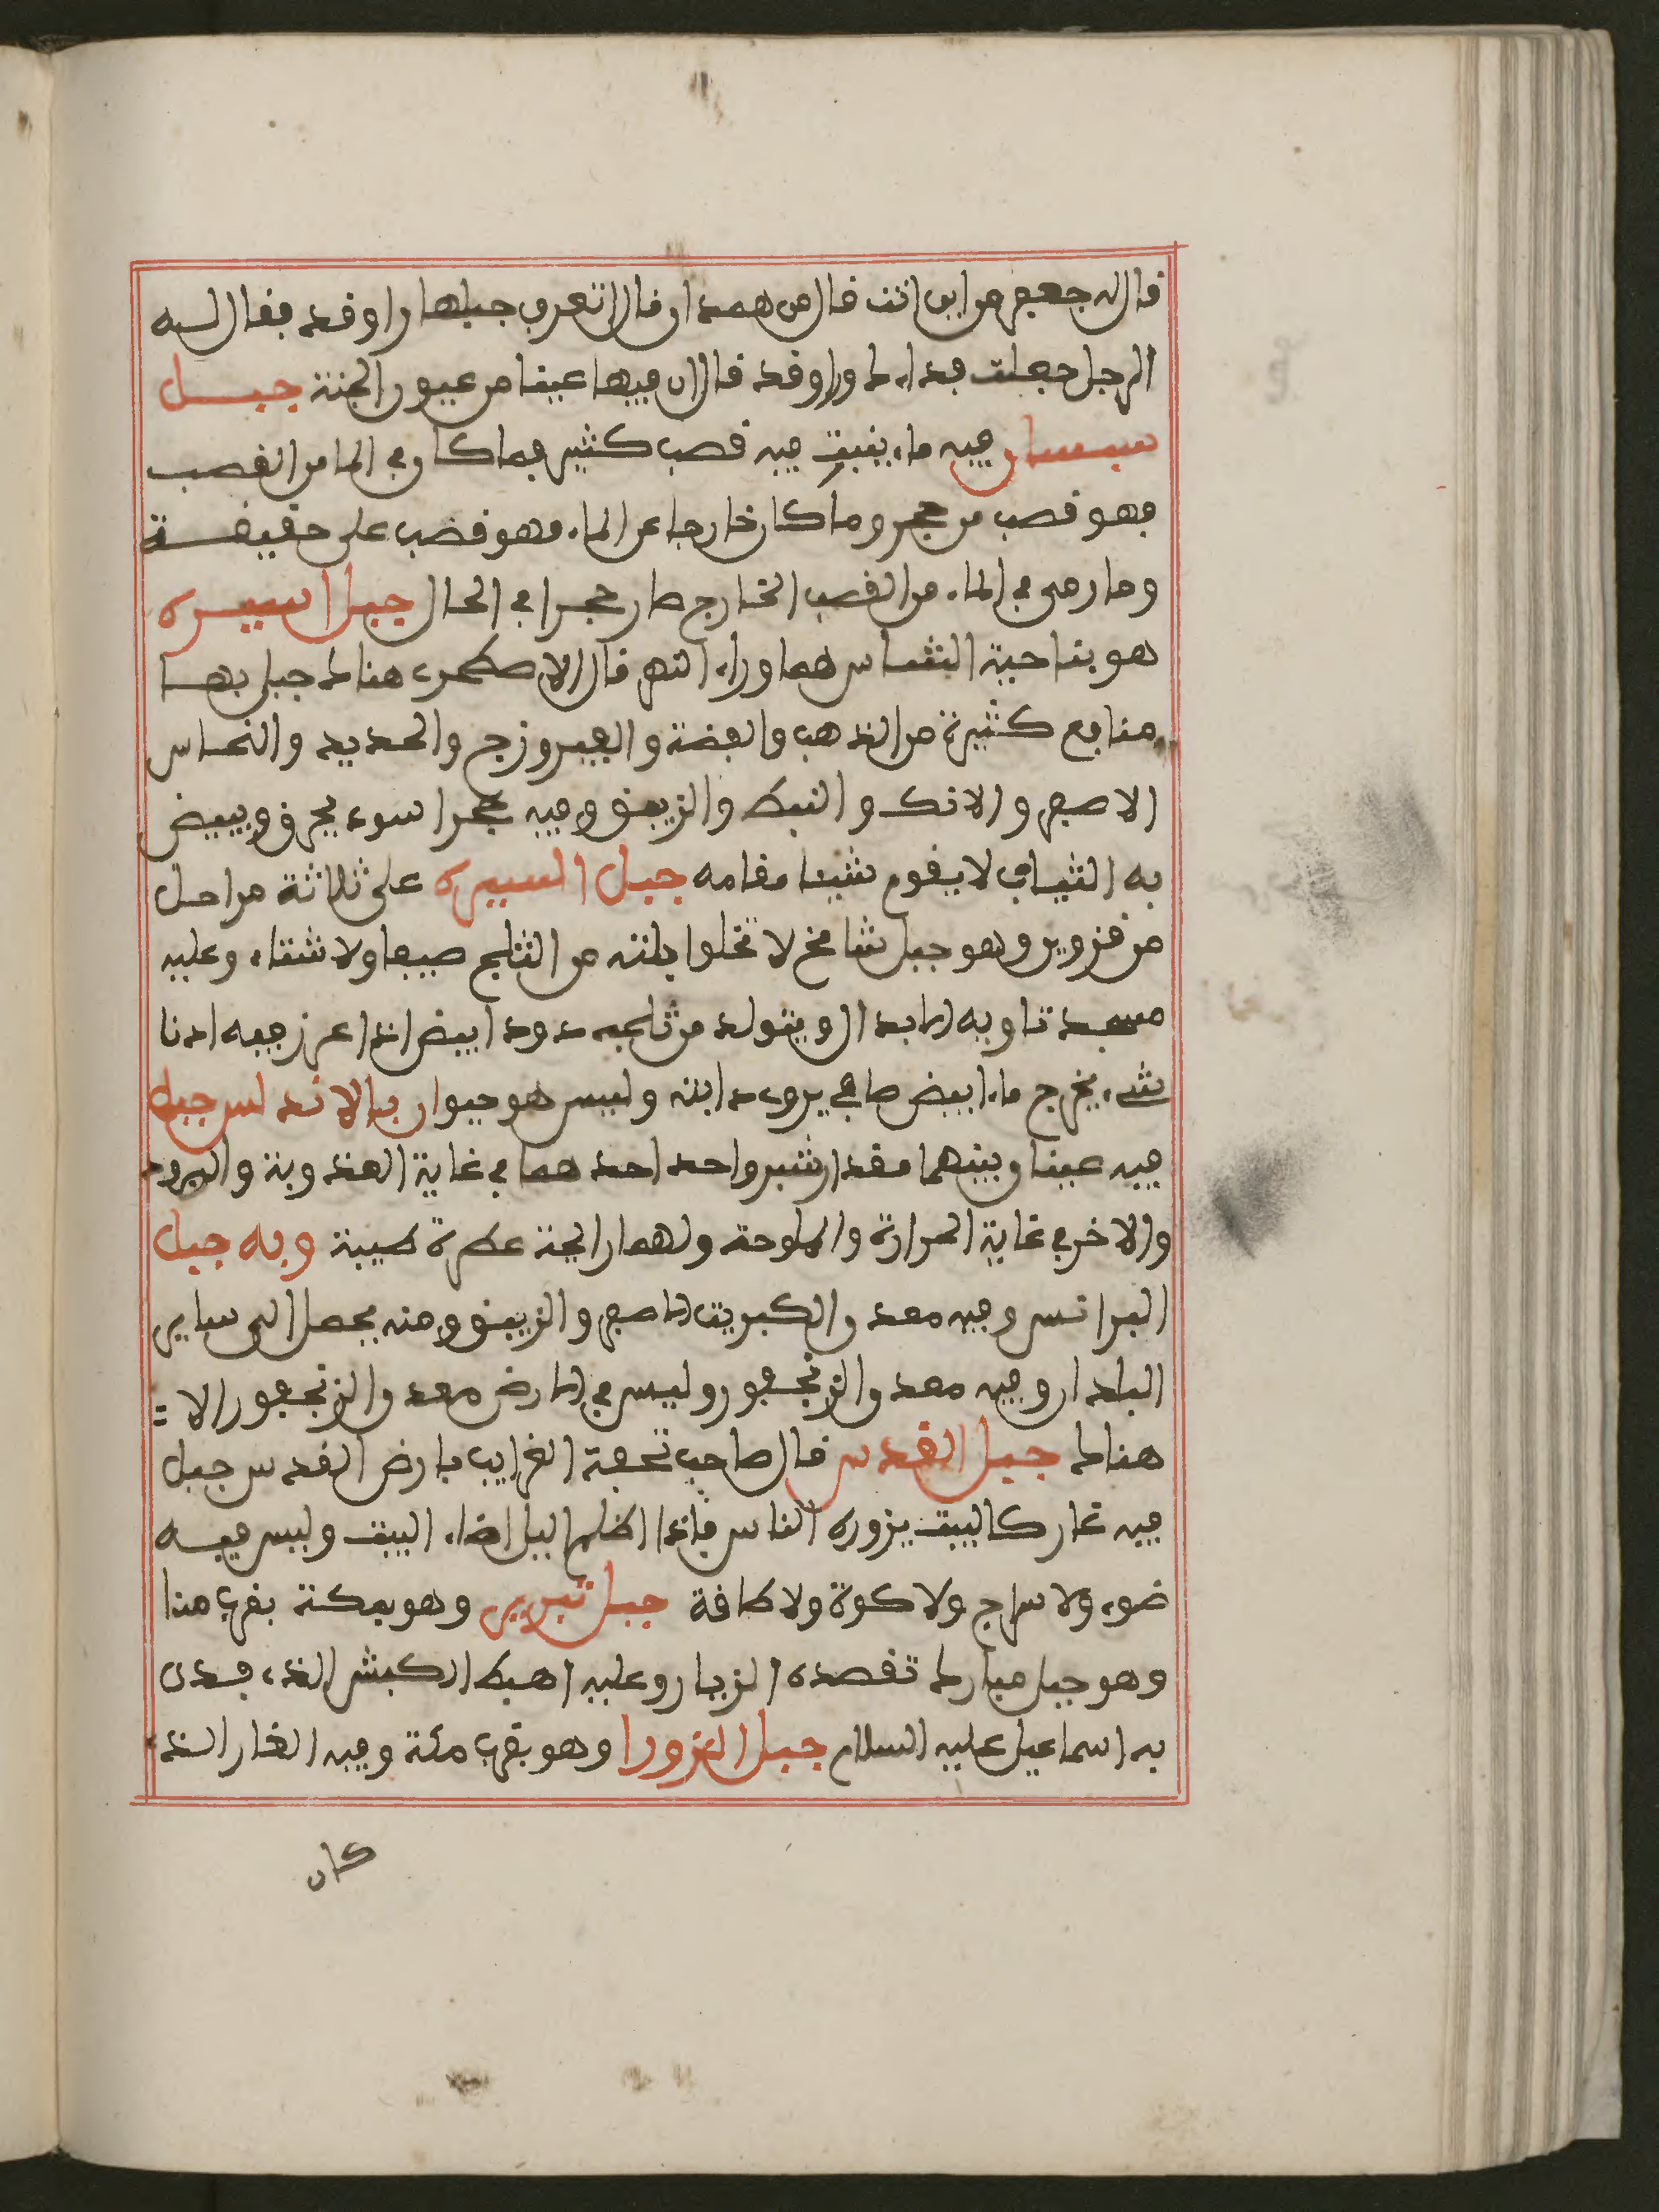 قال له جعفر من اين انت قال من همدان قال اتعرف جبلها راوفد فقال له
الرجل جعلت فداءك وراوفد قال ان فيها عينا من عيون الجنة جبل
سبسان فيه ماء ينبت فيه قصب كثير فما كان في الما من القصب
فهو قصب من حجر وما كان خارجا عن الماء فهو قصب على حقيقة
وما رمى في الماء من القصب الخارج صار حجرا في الحال جبل اسبيره
هو بناحية الشاس مما وراء النهر قال الاصطخرى هناك جبل بها
منافع كثيرة من الذهب والفضة والفيروزج والحديد والنحاس
الاصفر والانك والنبط والزيبق وفيه حجر اسود يحرق ويبيض
به الثياب لا يقوم شيئا مقامه جبل السيره على ثلاثة مراحل
من قزوين وهو جبل شامخ لا تخلوا قلته من الثلج صيفا ولا شتاء وعليه
مسجد تاويه الابدال ويتولد من ثلجه دود ابيض اذا غرز فيه ادنا
شىء يخرج ماء ابيض صافي يروى دابته وليس هو حيوان بالاندلس جبل
فيه عينان بينهما مقدار شبر واحد احدهما في غاية العذوبة والبرود
والاخر في غاية الحرارة والملوحة ولهما رايحة عطرة طيبة وبه جبل
البرانس وفيه معدن الكبريت الاصفر والزيبق ومنه يحصل الى ساير
البلدان وفيه معدن الزنجفور وليس في الارض معدن الزنجفور الا
هناك جبل القدس قال صاحب تحفة الغرايب بارض القدس جبل
فيه غار كالبيت يزوره الناس فاذا اظلم اليل اضاء البيت وليس فيه
ضوء ولا سراج ولا كوة ولا طاقة جبل تبريس وهو بمكة بقرب منا
وهو جبل مبارك تقصده الزوار وعليه اهبط الكبش الذى فدى
به اسماعيل عليه السلام جبل الغزورا وهو بقرب مكة وفيه الغار الذى
كان